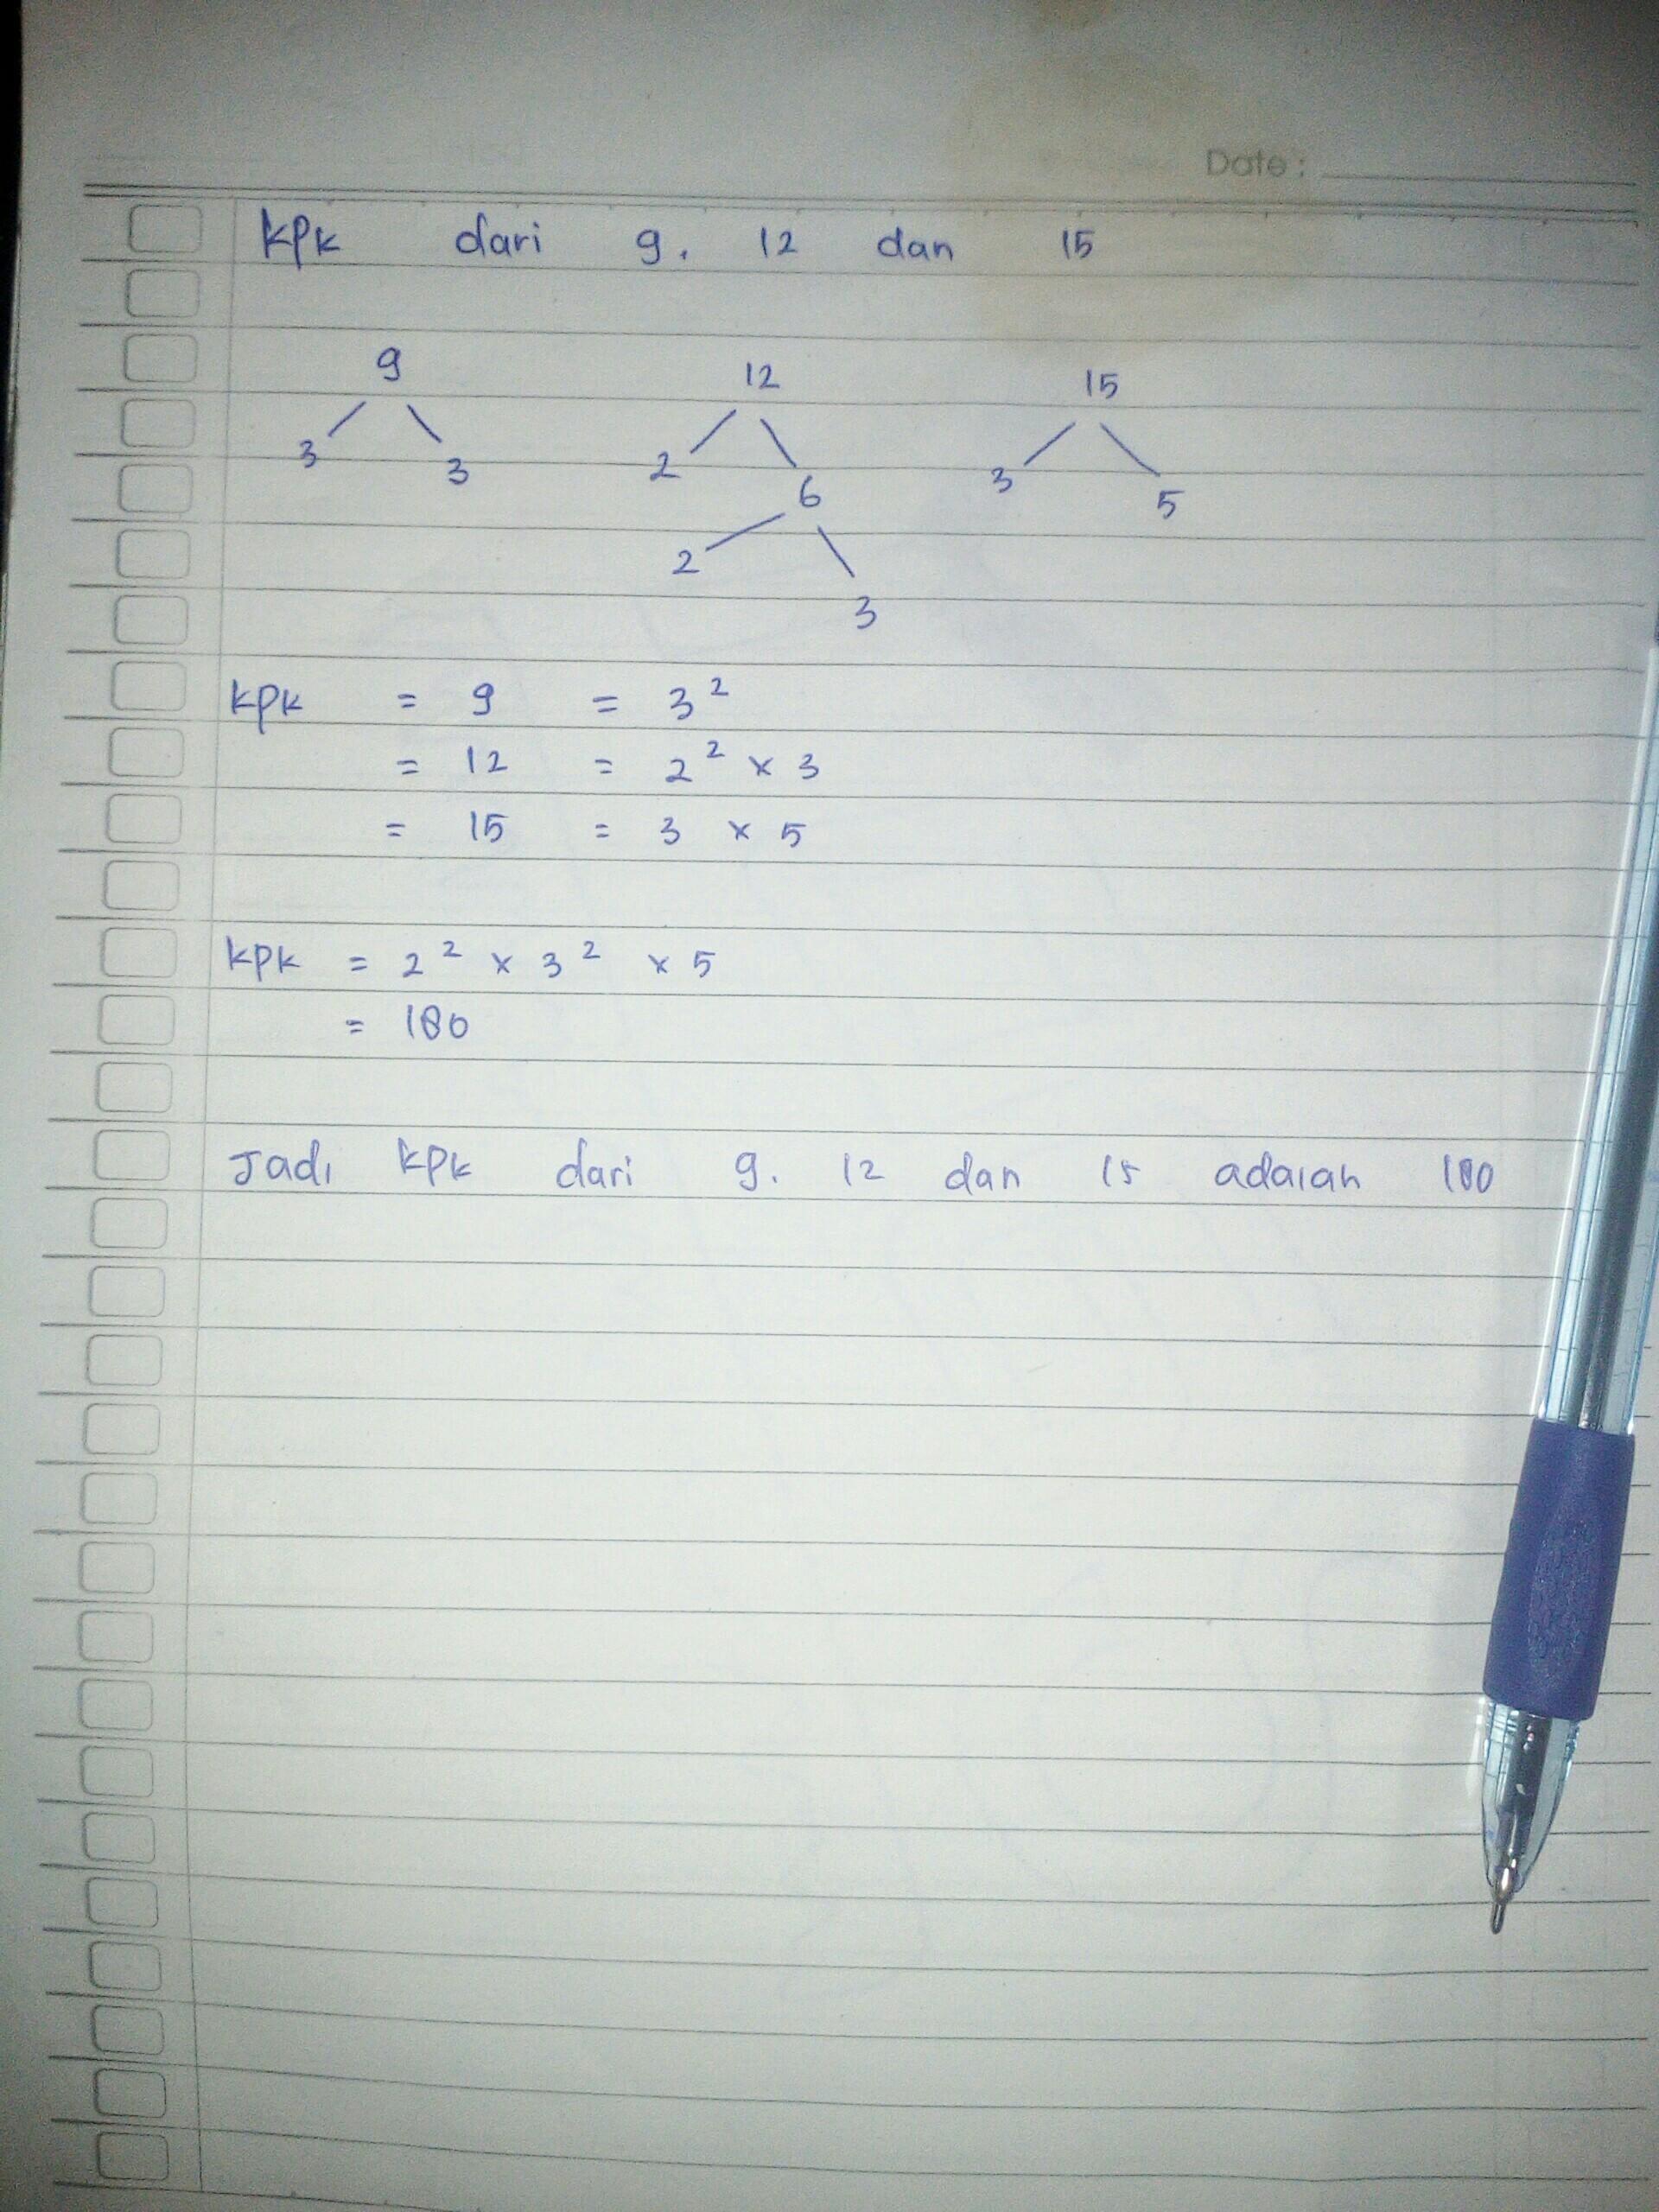 Date :
kpk dari 9. 12 dan 15
9 12 15
3 3 2 6 3 5
2 3
kpk = 9 = 3²
= 12 = 2² × 3
= 15 = 3 × 5
kpk = 2² × 3² × 5
= 180
Jadi kpk dari 9. 12 dan 15 adalah 180